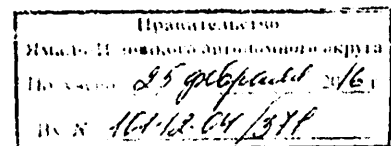 Правительство
Ямало-Ненецкого автономного округа
Получено 25 февраля 2016 г.
Вх. № 101-12-04/